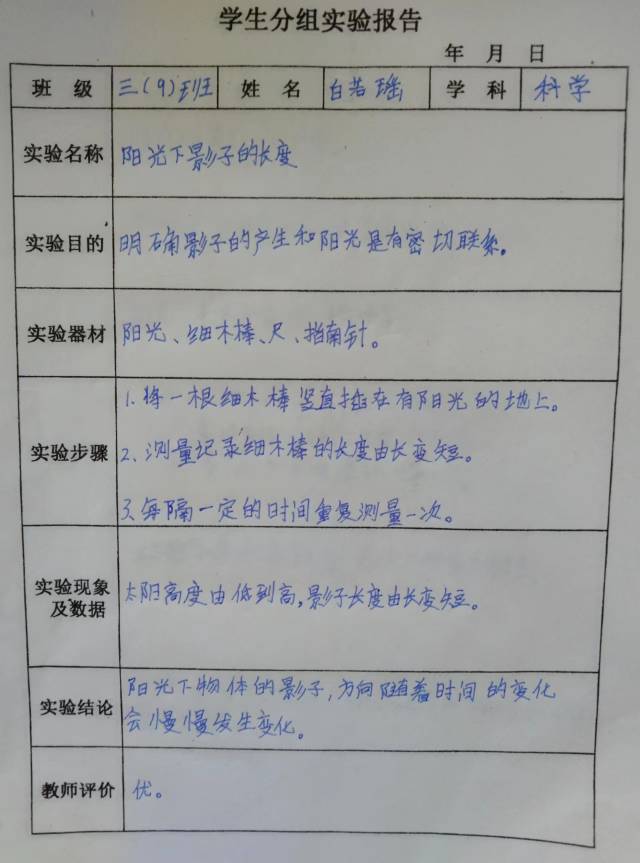 学生分组实验报告
年 月 日
班 级 三(9)班 姓 名 白若瑶 学 科 科学
实验名称 阳光下影子的长度
实验目的 明确影子的产生和阳光是有密切联系。
实验器材 阳光、细木棒、尺、指南针。
实验步骤
1. 将一根细木棒竖直插在有阳光的地上。
2、测量记录细木棒的长度由长变短。
3、每隔一定的时间重复测量一次。
实验现象及数据 太阳高度由低到高,影子长度由长变短。
实验结论
阳光下物体的影子,方向随着时间的变化
会慢慢发生变化。
教师评价 优。